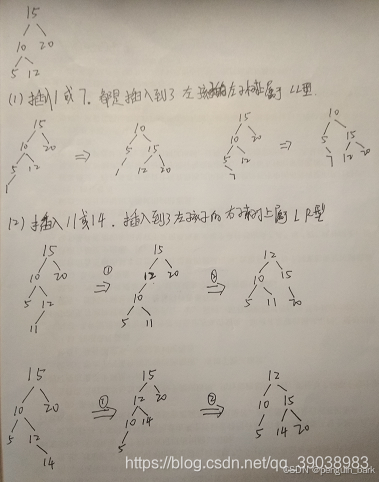 15
10 20
5 12
(1) 插入1或7. 都是插入到了左孩子的左子树上属于LL型.
15 10 15 10
10 20 5 15 10 20 5 15
5 12 ⇒ 1 12 20 5 12 ⇒ 7 12 20
1 7
(2) 插入11或14. 插入到了左孩子的右子树上属LR型
15 15 12
10 20 ① 12 20 ② 10 15
5 12 ⇒ 10 ⇒ 5 11 20
11 5 11
15 15 12
10 20 ① 12 20 ② 10 15
5 12 ⇒ 10 14 ⇒ 5 14 20
14 5
https://blog.csdn.net/qq_39038983
CSDN @penguin_bark